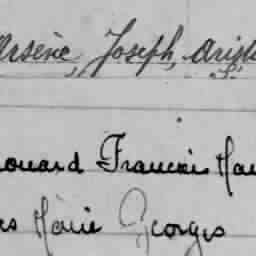 Arsène, Joseph, Arist
douard François Mar
es Marie Georges